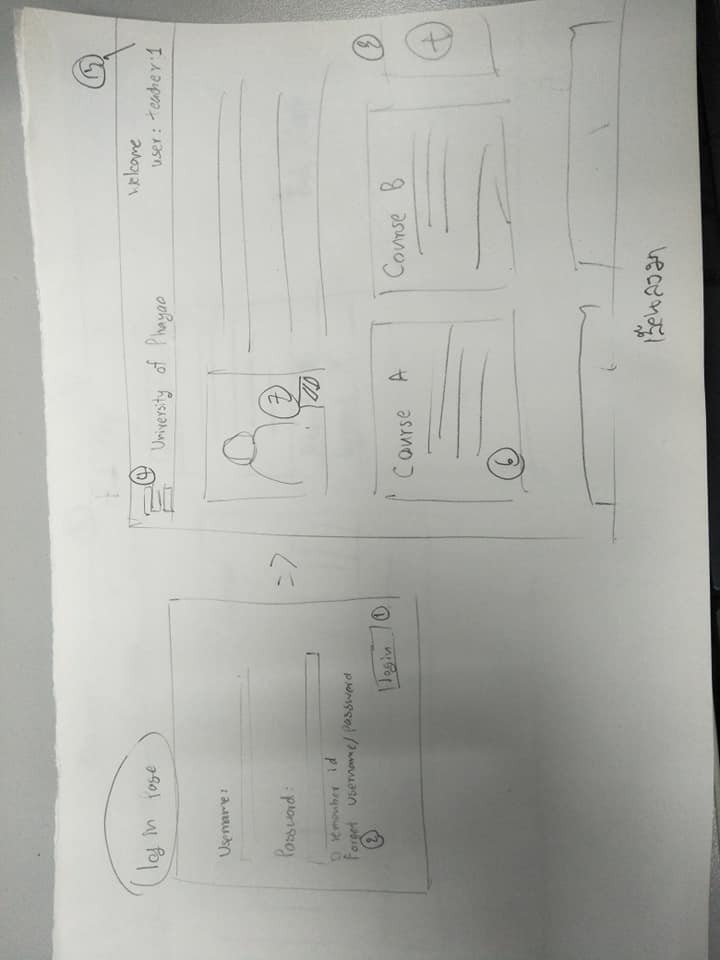 log in Page
Username:
Password:
remember id
Forgot username/password
2
login
1
4
University of Phayao
Welcome
user: teacher:1
13
7
Course A
6
Course B
3
+
เลื่อนลงมา